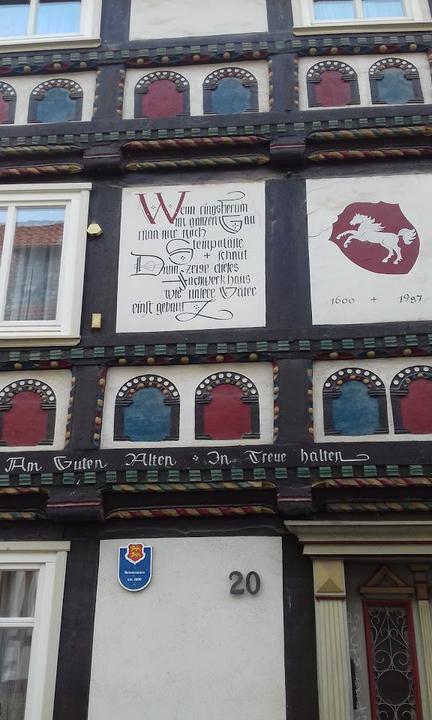 Wenn ringsherum
im ganzen Gau
man nur noch
Stempaläne
+ schaut
Dann zeige dieses
Fachwerkhaus
wie unsere Väter
einst gebaut
1600 + 1987
Am Guten Alten + In Treue halten
20